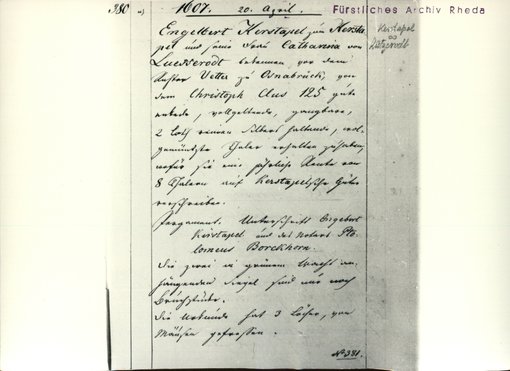 380 a) 1607. 20. April.
Fürstliches Archiv Rheda
Engelbert Kerstapel zum Kersta
pel und seine Frau Catharina von
Luesserodt bekennen, vor dem
Küster Vette zu Osnabrück, von
dem Christoph Clus 125 gute
, vollgeltende, gangbare,
2 Loth reinen Silbers haltende, wol
gemünzte Thaler erhalten zu haben,
wofür sie eine jährliche Rente von
8 Thalern auf Kerstapelsche Güter
verschreiben.
Pergament. Unterschrift Engebert
Kerstapel und des Notars Pto
lomeus Borckhorn.
Die zwei in grünem Wachs an
hängenden Siegel sind nur noch
Bruchstücke.
Die Urkunde hat 3 Löcher, von
Mäusen gefressen.
No 381.
Kerstapel
∞